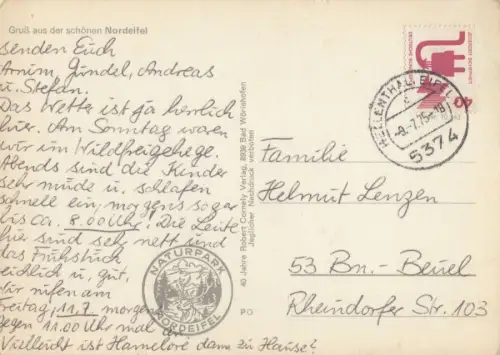 Gruß aus der schönen Nordeifel
senden Euch
Armin, Gindel, Andreas
u. Stefan.
Das Wetter ist ja herrlich
hier. Am Sonntag waren
wir im Wildfreigehege.
Abends sind die Kinder
sehr müde u. schlafen
schnell ein, morgens sogar
bis ca. 8.00 Uhr! Die Leute
hier sind sehr nett und
das Frühstück
reichlich u. gut.
Wir rufen am
Freitag, 11.7. morgen
gegen 11.00 Uhr mal an
Vielleicht ist Hannelore dann zu Hause?
40 Jahre Robert Cornely Verlag, 8939 Bad Wörishofen
Jeglicher Nachdruck verboten
NATURPARK
NORDEIFEL
PO
HELLENTHAL, EIFEL
c
-9.-7.75-18
5374
40
DEUTSCHE BUNDESPOST
Familie
Helmut Lenzen
53 Bn.-Beuel
Rheindorfer Str. 103